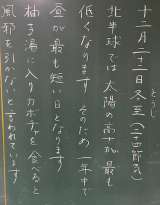 十二月二十二日冬至(二十四節気)
とうじ
北半球では太陽の高さが最も
低くなります そのため一年中で
昼が最も短い日となります
柚子湯に入りカボチャを食べると
風邪を引かないと言われています